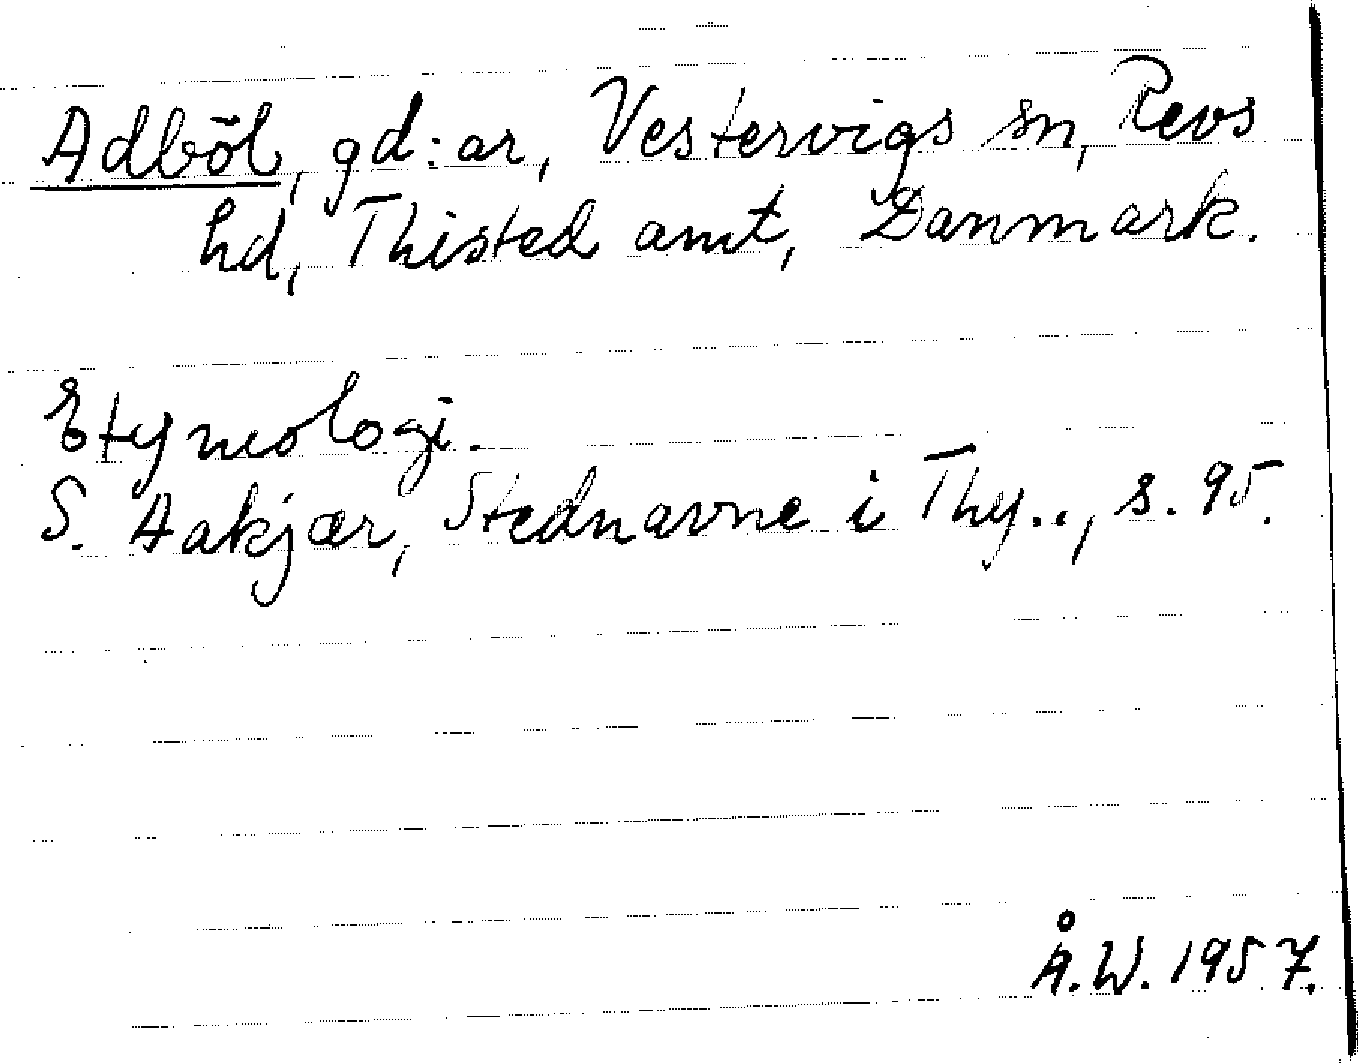 Adböl, gd:ar, Vestervigs sn, Revs
hd, Thisted amt, Danmark.
Etymologi.
S. Aakjær, Stednavne i Thy.., s. 95.
Å.W. 1957.